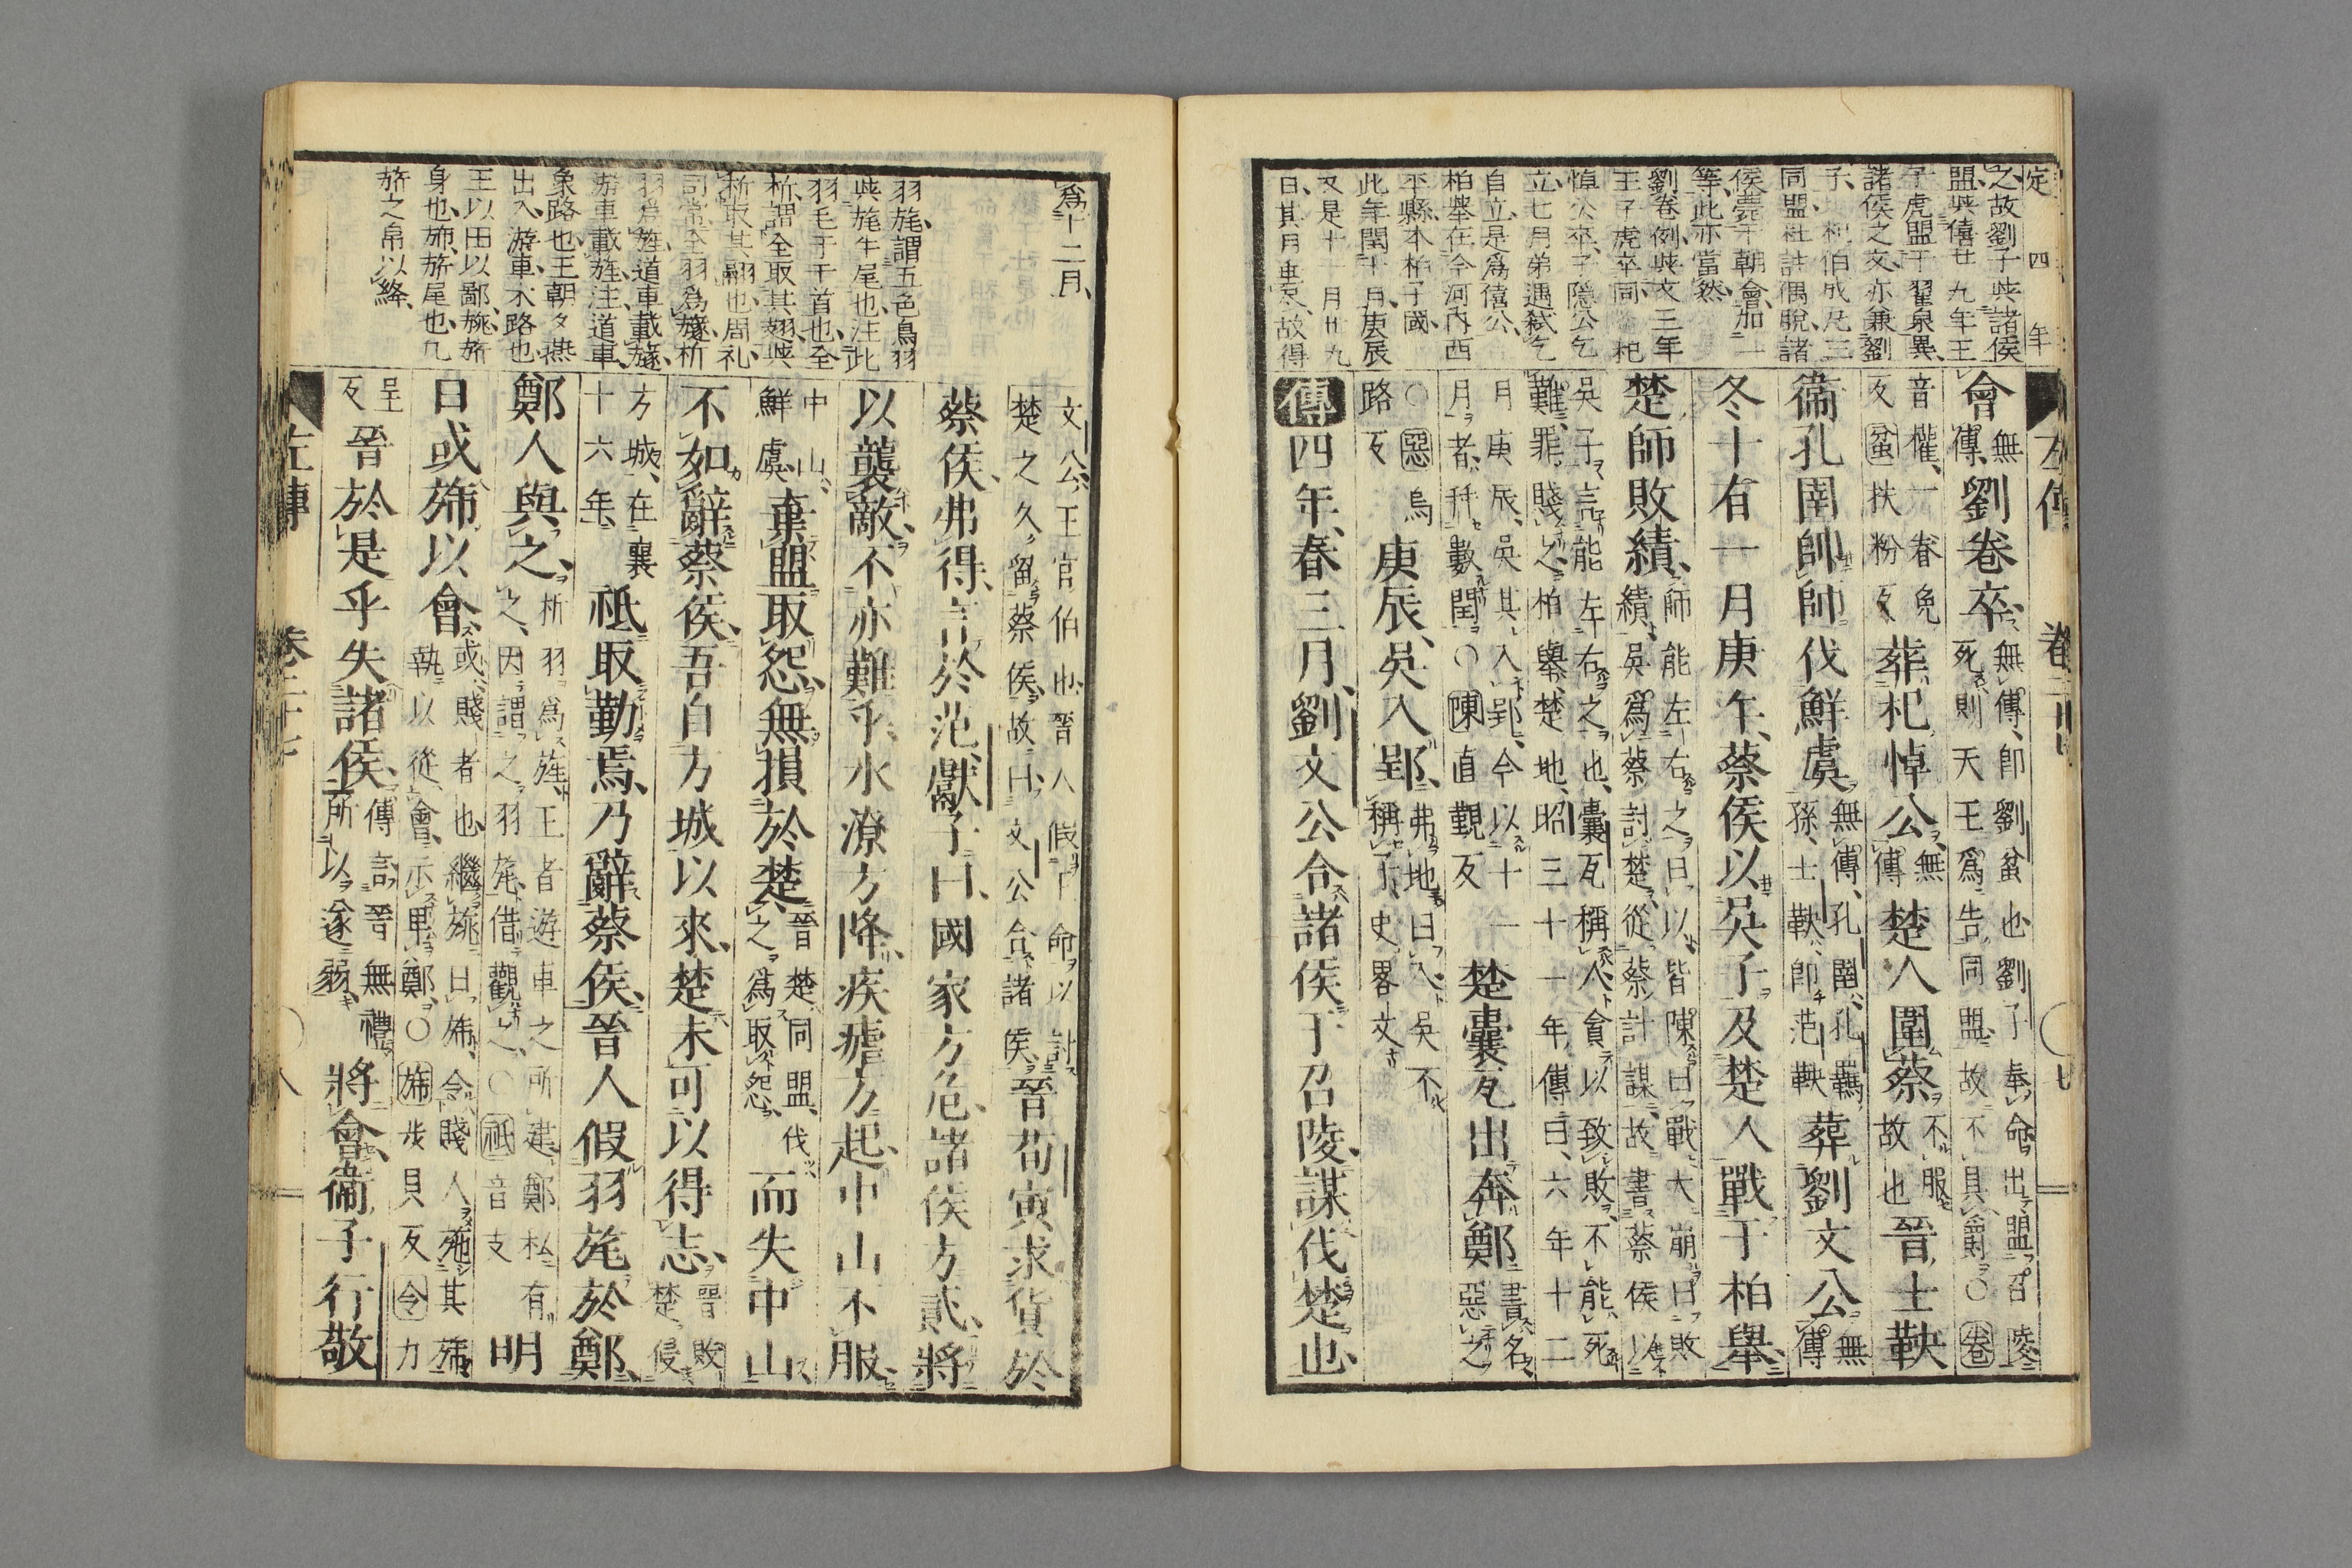 定四年
之故劉子與諸侯
盟與僖廿九年王
子虎盟于翟泉異
諸侯之文亦兼劉
子杞伯成凡三
同盟杜註偶脫諸
侯薨于朝會加一
等此亦當然
劉卷例與文三年
王子虎卒同杞
悼公卒子隱公乞
立七月弟遇弒乞
自立是爲僖公
柏舉在今河內西
平縣本柏子國
此年閏十月庚辰
又是十一月廿九
日其月更尽故得
左傳
會無傳劉卷卒無傳卽劉蚠也劉子奉命出盟召陵死則天王爲告同盟故不具爵○卷
音權一春免反蚠扶粉反葬杞悼公無傳楚人圍蔡不服故也晉士鞅
衞孔圉帥師伐鮮虞無傳孔圉孔羈孫士鞅卽范鞅葬劉文公無傳
冬十有一月庚午蔡侯以吳子及楚人戰于柏舉
楚師敗績師能左右之曰以皆陳曰戰大崩曰敗績吳爲蔡討楚從蔡計謀故書蔡侯以
吳子言能左右之也囊瓦稱人貪以致敗不能死難罪賤之柏舉楚地昭三十一年傳曰六年十二
月庚辰吳其入郢今以十一月者并數閏○陳直覲反楚囊瓦出奔鄭書名惡之
○惡烏路反庚辰吳入郢弗地曰入吳不稱子史畧文
傳四年春三月劉文公合諸侯于召陵謀伐楚也
爲十二月
羽旄謂五色鳥羽
與旄牛尾也注此
羽毛于干首也全
析謂全取其翅與
析取其翮也周礼
司常全羽爲旞析
羽爲旌道車載旞
斿車載旌注道車
象路也王朝夕燕
出入游車木路也
王以田以鄙旐旂
身也斾旂尾也凡
旂之帛以絳
文公王官伯也晉人假王命以討楚之久留蔡侯故曰文公合諸侯晉荀寅求貨於
蔡侯弗得言於范獻子曰國家方危諸侯方貳將
以襲敵不亦難乎水潦方降疾瘧方起中山不服
中山鮮虞棄盟取怨無損於楚晉楚同盟伐之爲取怨而失中山
不如辭蔡侯吾自方城以來楚未可以得志晉敗楚侵
方城在襄十六年祇取勤焉乃辭蔡侯晉人假羽旄於鄭
鄭人與之析羽爲旌王者遊車之所建鄭私有之因謂之羽旄借觀之○祇音支明
日或斾以會或賤者也繼旐曰斾令賤人施其斾執以從會示卑鄭○斾步貝反令力
呈反晉於是乎失諸侯傳言晉無禮所以遂弱將會衞子行敬
左傳 卷二十七 ○八